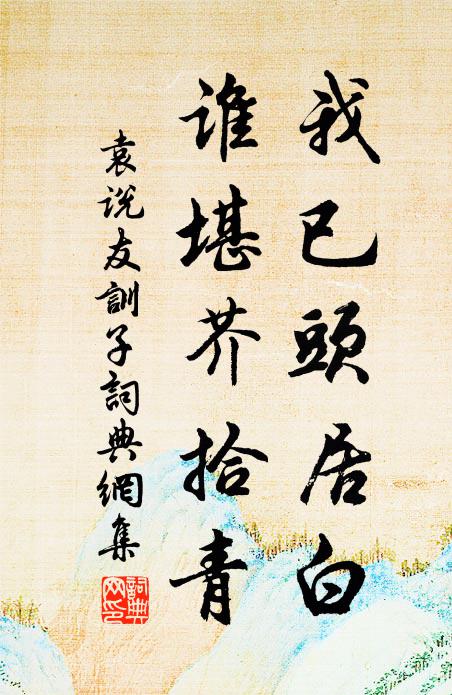 我已頭居白
誰堪芥拾青
袁说友訓子詞典網集
詞典网印